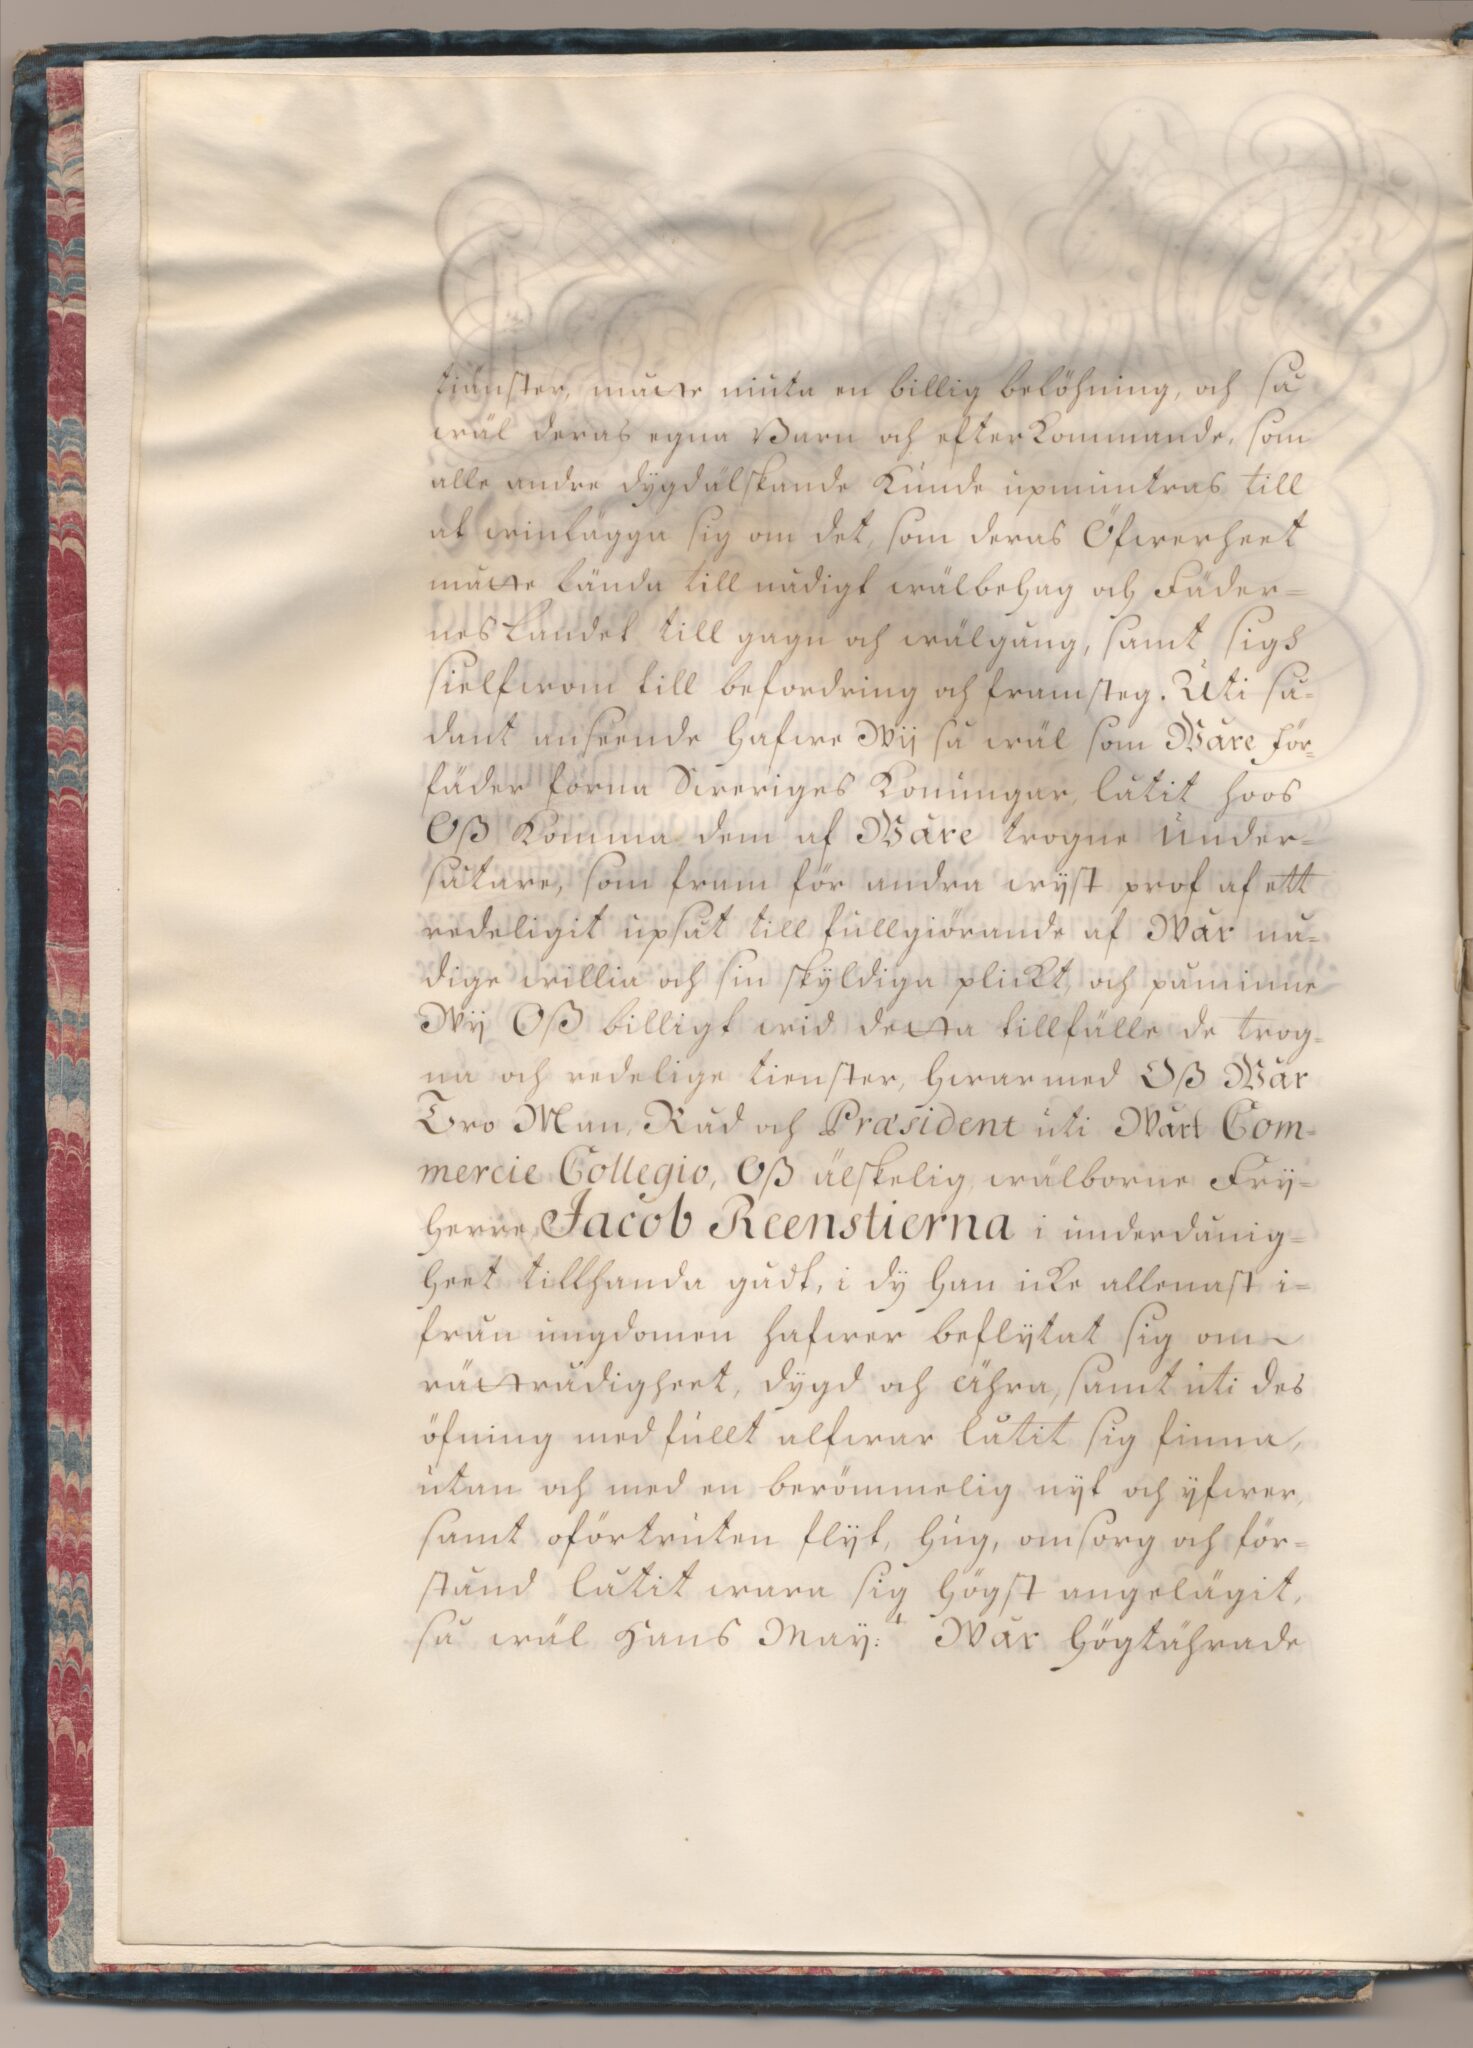 tiänster, måtte niuta en billig belöhning, och så
wäl deras egna Barn och efterkommande, som
alle andre dygdälskande kunde upmuntras till
at winlägga sig om det, som deras Öfwerheet
måtte lända till nådigt wälbehag och Fäder-
neslandet till gagn och wälgång, samt sigh
sielfwom till befordring och framsteg. Uti så-
dant anseende hafwe Wij så wäl som Wåre för-
fäder förna Sweriges Konungar, låtit hoos
Oß komma dem af Wåre trogne under-
såtare, som fram för andra wyst prof af ett
redeligit upsåt till fullgiörande af Wår nå-
dige willia och sin skyldiga plickt, och påminne
Wij Oß billigt wid detta tillfälle de trog-
na och redelige tienster, hwarmed Oß Wår
Tro Man, Råd och Præsident uti Wårt Com-
mercie Collegio, Oß älskelig, wälborne Fry-
herre Jacob Reenstierna i underdånig-
heet tillhanda gådt, i dy han icke allenast i-
från ungdomen hafwer beflytat sig om
rättrådigheet, dygd och ähra, samt uti des
öfning med fullt alfwar låtit sig finna,
utan och med en berömmelig nyt och yfwer,
samt oförtruten flyt, hug, omsorg och för-
stånd låtit wara sig högst angelägit,
så wäl Hans May:t Wår Högtährade